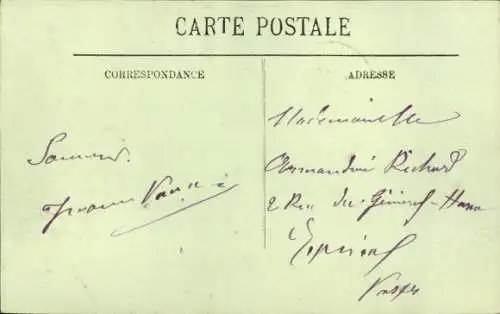 CARTE POSTALE
CORRESPONDANCE
ADRESSE
Souvenir.
Mademoiselle
Armandine Richard
2 Rue du Général-
Epinal
Vosges